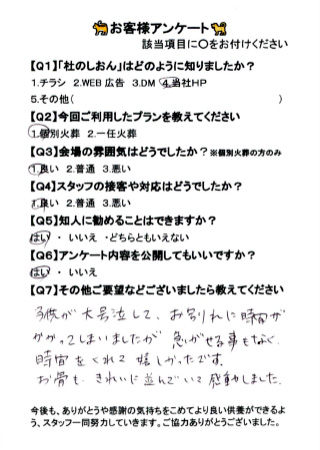 お客様アンケート
該当項目に○をお付けください
【Q1】「杜のしおん」はどのように知りましたか？
1.チラシ 2.WEB広告 3.DM 4.当社HP
5.その他( )
【Q2】今回ご利用したプランを教えてください
1.個別火葬 2.一任火葬
【Q3】会場の雰囲気はどうでしたか？※個別火葬の方のみ
1.良い 2.普通 3.悪い
【Q4】スタッフの接客や対応はどうでしたか？
1.良い 2.普通 3.悪い
【Q5】知人に勧めることはできますか？
はい ・ いいえ ・どちらともいえない
【Q6】アンケート内容を公開してもいいですか？
はい ・ いいえ
【Q7】その他ご要望などございましたら教えてください
子供が大号泣して、お別れに時間が
かかってしまいましたが 急がせる事もなく、
時間をくれて嬉しかったです。
お骨も、きれいに並んでいて感動しました。
今後も、ありがとうや感謝の気持ちをこめてより良い供養ができるよ
う、スタッフ一同努力していきます。ご協力ありがとうございました。